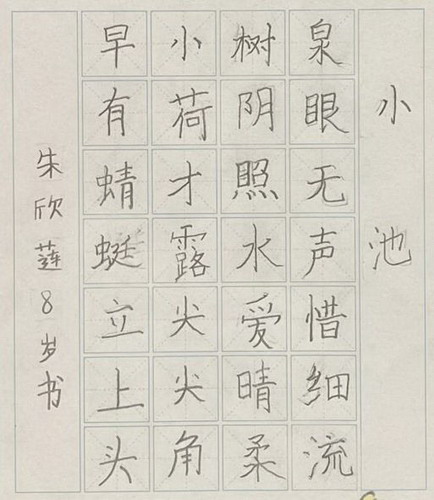 小池
泉眼无声惜细流
树阴照水爱晴柔
小荷才露尖尖角
早有蜻蜓立上头
朱欣莲8岁书